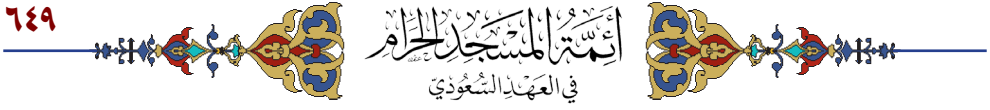 ٦٤٩
أَئِمَّةُ المَسْجِدِ الحَرَامِ
في العَهْدِ السُّعُودِيّ